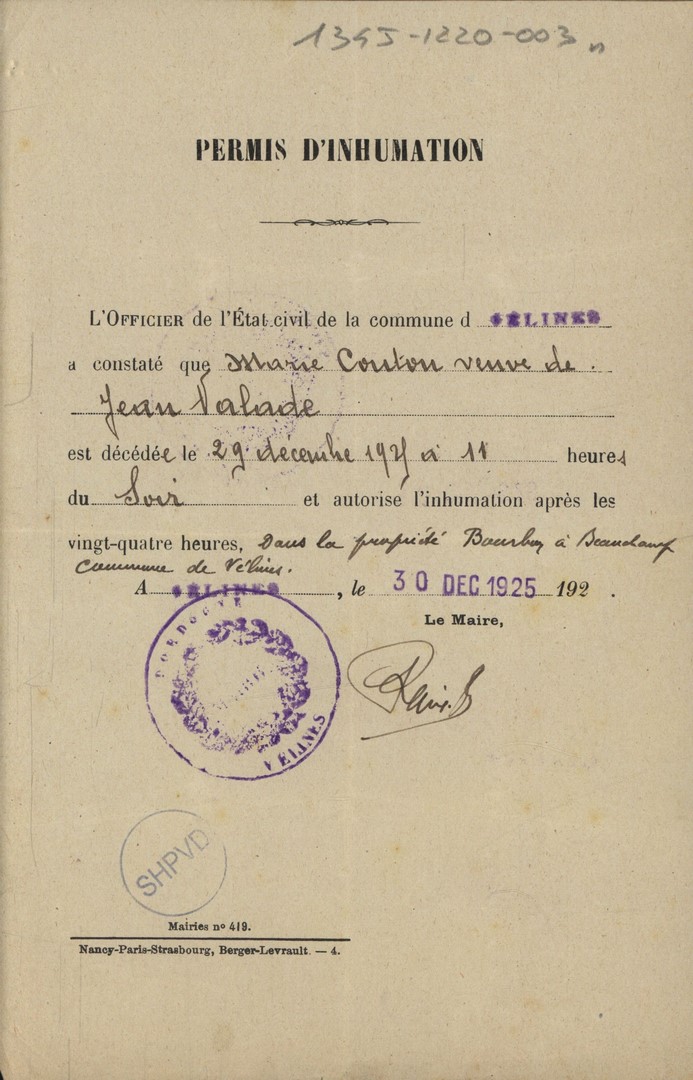 1345-1220-003
PERMIS D'INHUMATION
L'OFFICIER de l'État civil de la commune d VELINES
a constaté que Marie Couton veuve de
Jean Valade
est décédée le 29 décembre 1925 à 11 heures
du Soir et autorise l'inhumation après les
vingt-quatre heures, Dans la propriété à Beauchamp
Commune de Vélines.
A VELINES, le 30 DEC 1925 192 .
Le Maire,
DORDOGNE
MAIRIE
VÉLINES
SHPVD
Mairies nº 419.
Nancy-Paris-Strasbourg, Berger-Levrault. — 4.